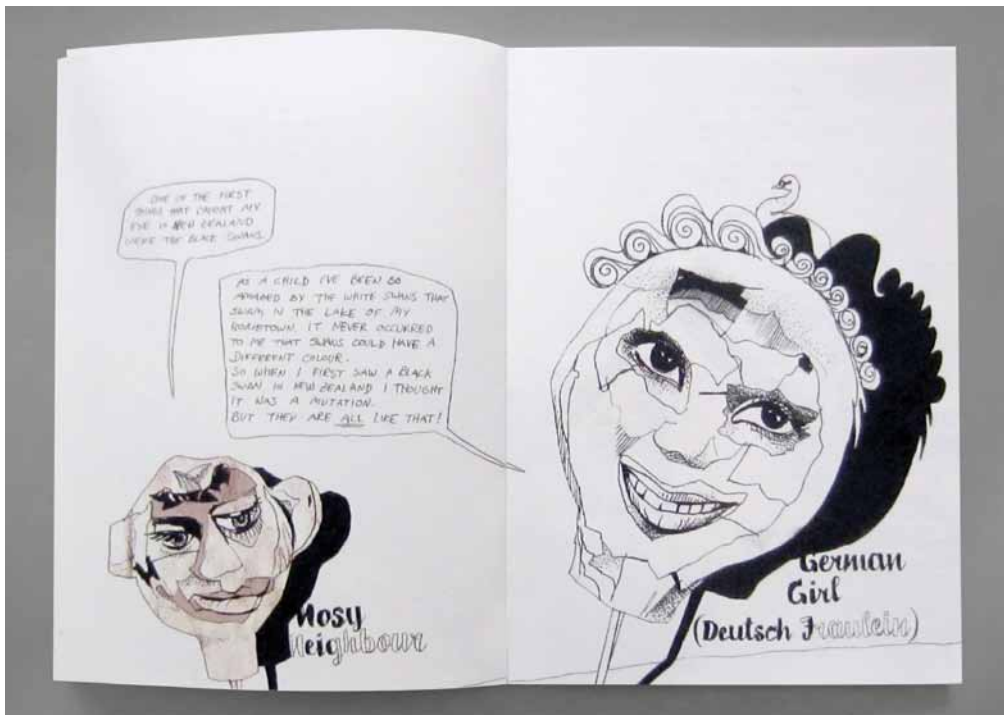 ONE OF THE FIRST
THINGS THAT CAUGHT MY
EYE IN NEW ZEALAND
WERE THE BLACK SWANS.
AS A CHILD I'VE BEEN SO
AMAZED BY THE WHITE SWANS THAT
SWIM IN THE LAKE OF MY
HOMETOWN. IT NEVER OCCURRED
TO ME THAT SWANS COULD HAVE A
DIFFERENT COLOUR.
SO WHEN I FIRST SAW A BLACK
SWAN IN NEW ZEALAND I THOUGHT
IT WAS A MUTATION.
BUT THEY ARE ALL LIKE THAT!
Nosy
Neighbour
German
Girl
(Deutsch Fraulein)